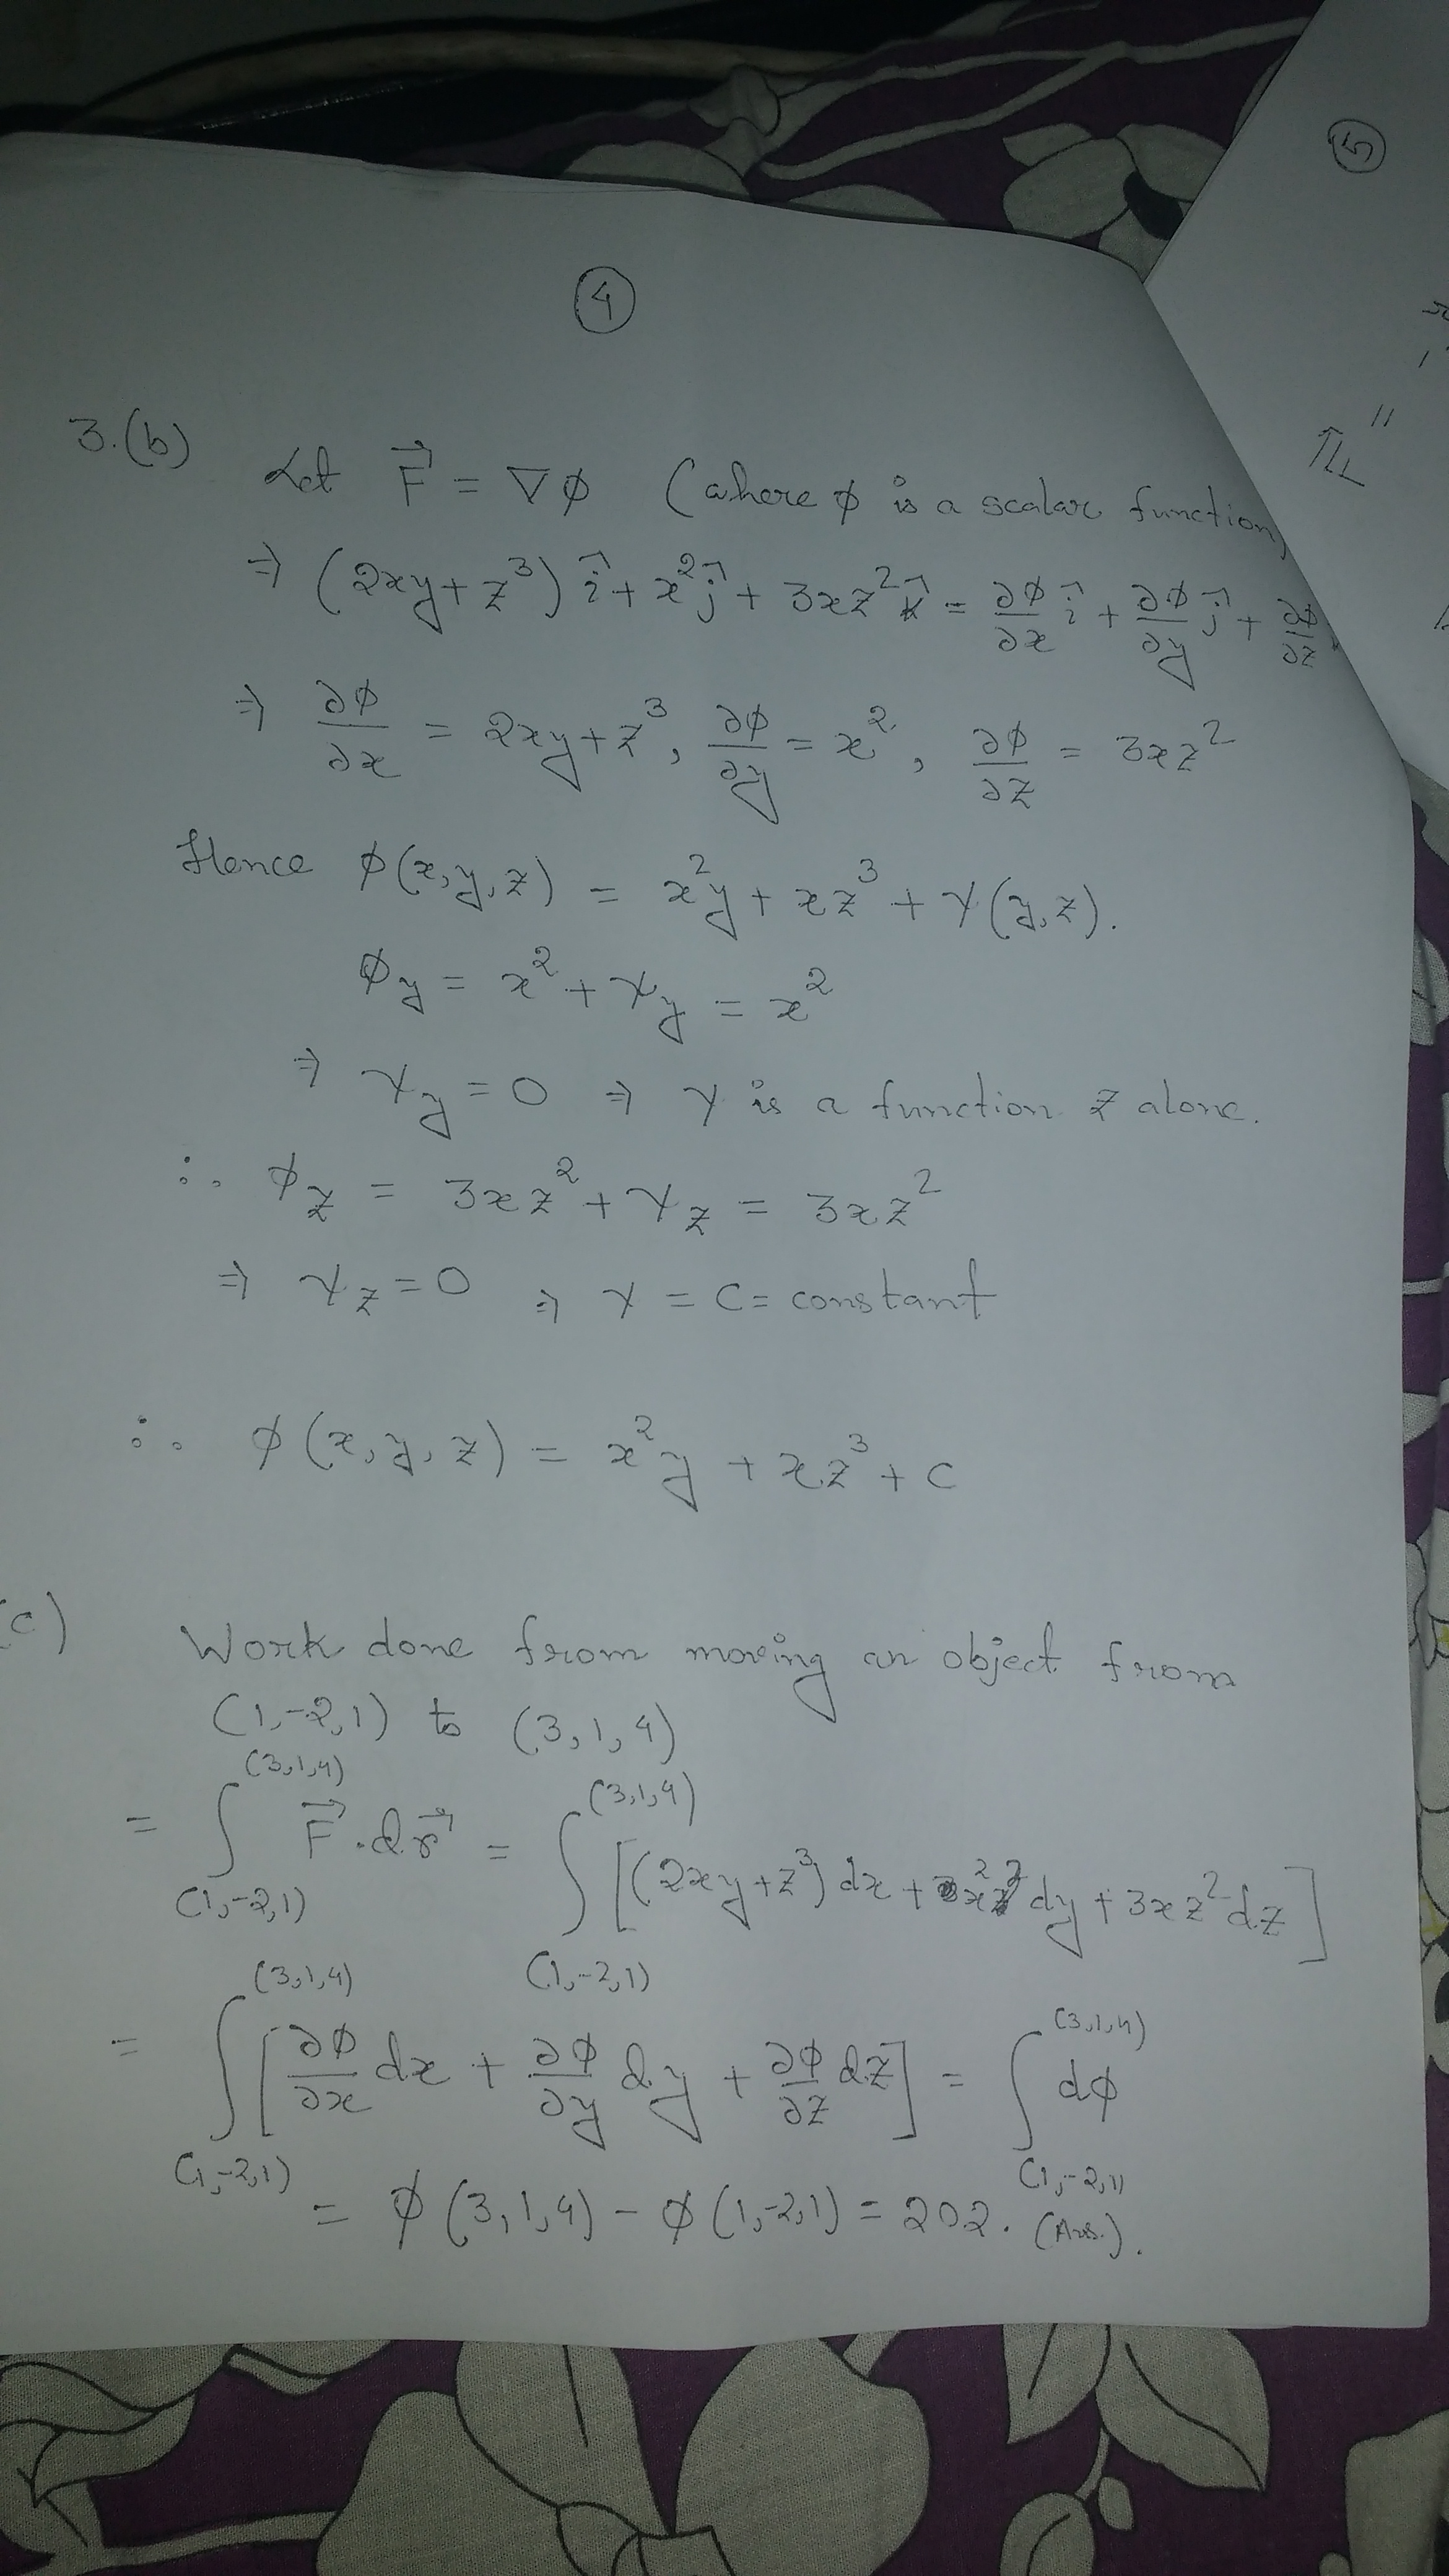 5
4
3.(b) Let F⃗ = ∇φ (where φ is a scalar function)
⇒ (2xy+z³) î + x² ĵ + 3xz² k̂ = ∂φ/∂x î + ∂φ/∂y ĵ + ∂φ/∂z
⇒ ∂φ/∂x = 2xy+z³, ∂φ/∂y = x², ∂φ/∂z = 3xz²
Hence φ(x,y,z) = x²y + xz³ + γ(y,z).
φy = x² + γy = x²
⇒ γy = 0 ⇒ γ is a function z alone.
∴ φz = 3xz² + γz = 3xz²
⇒ γz = 0 ⇒ γ = c = constant
∴ φ(x,y,z) = x²y + xz³ + c
(c) Work done from moving an object from
(1,-2,1) to (3,1,4)
= ∫_(1,-2,1)^(3,1,4) F⃗.dr⃗ = ∫_(1,-2,1)^(3,1,4) [(2xy+z³) dx + x² dy + 3xz² dz]
= ∫_(1,-2,1)^(3,1,4) [∂φ/∂x dx + ∂φ/∂y dy + ∂φ/∂z dz] = ∫_(1,-2,1)^(3,1,4) dφ
= φ(3,1,4) - φ(1,-2,1) = 202. (Ans.).